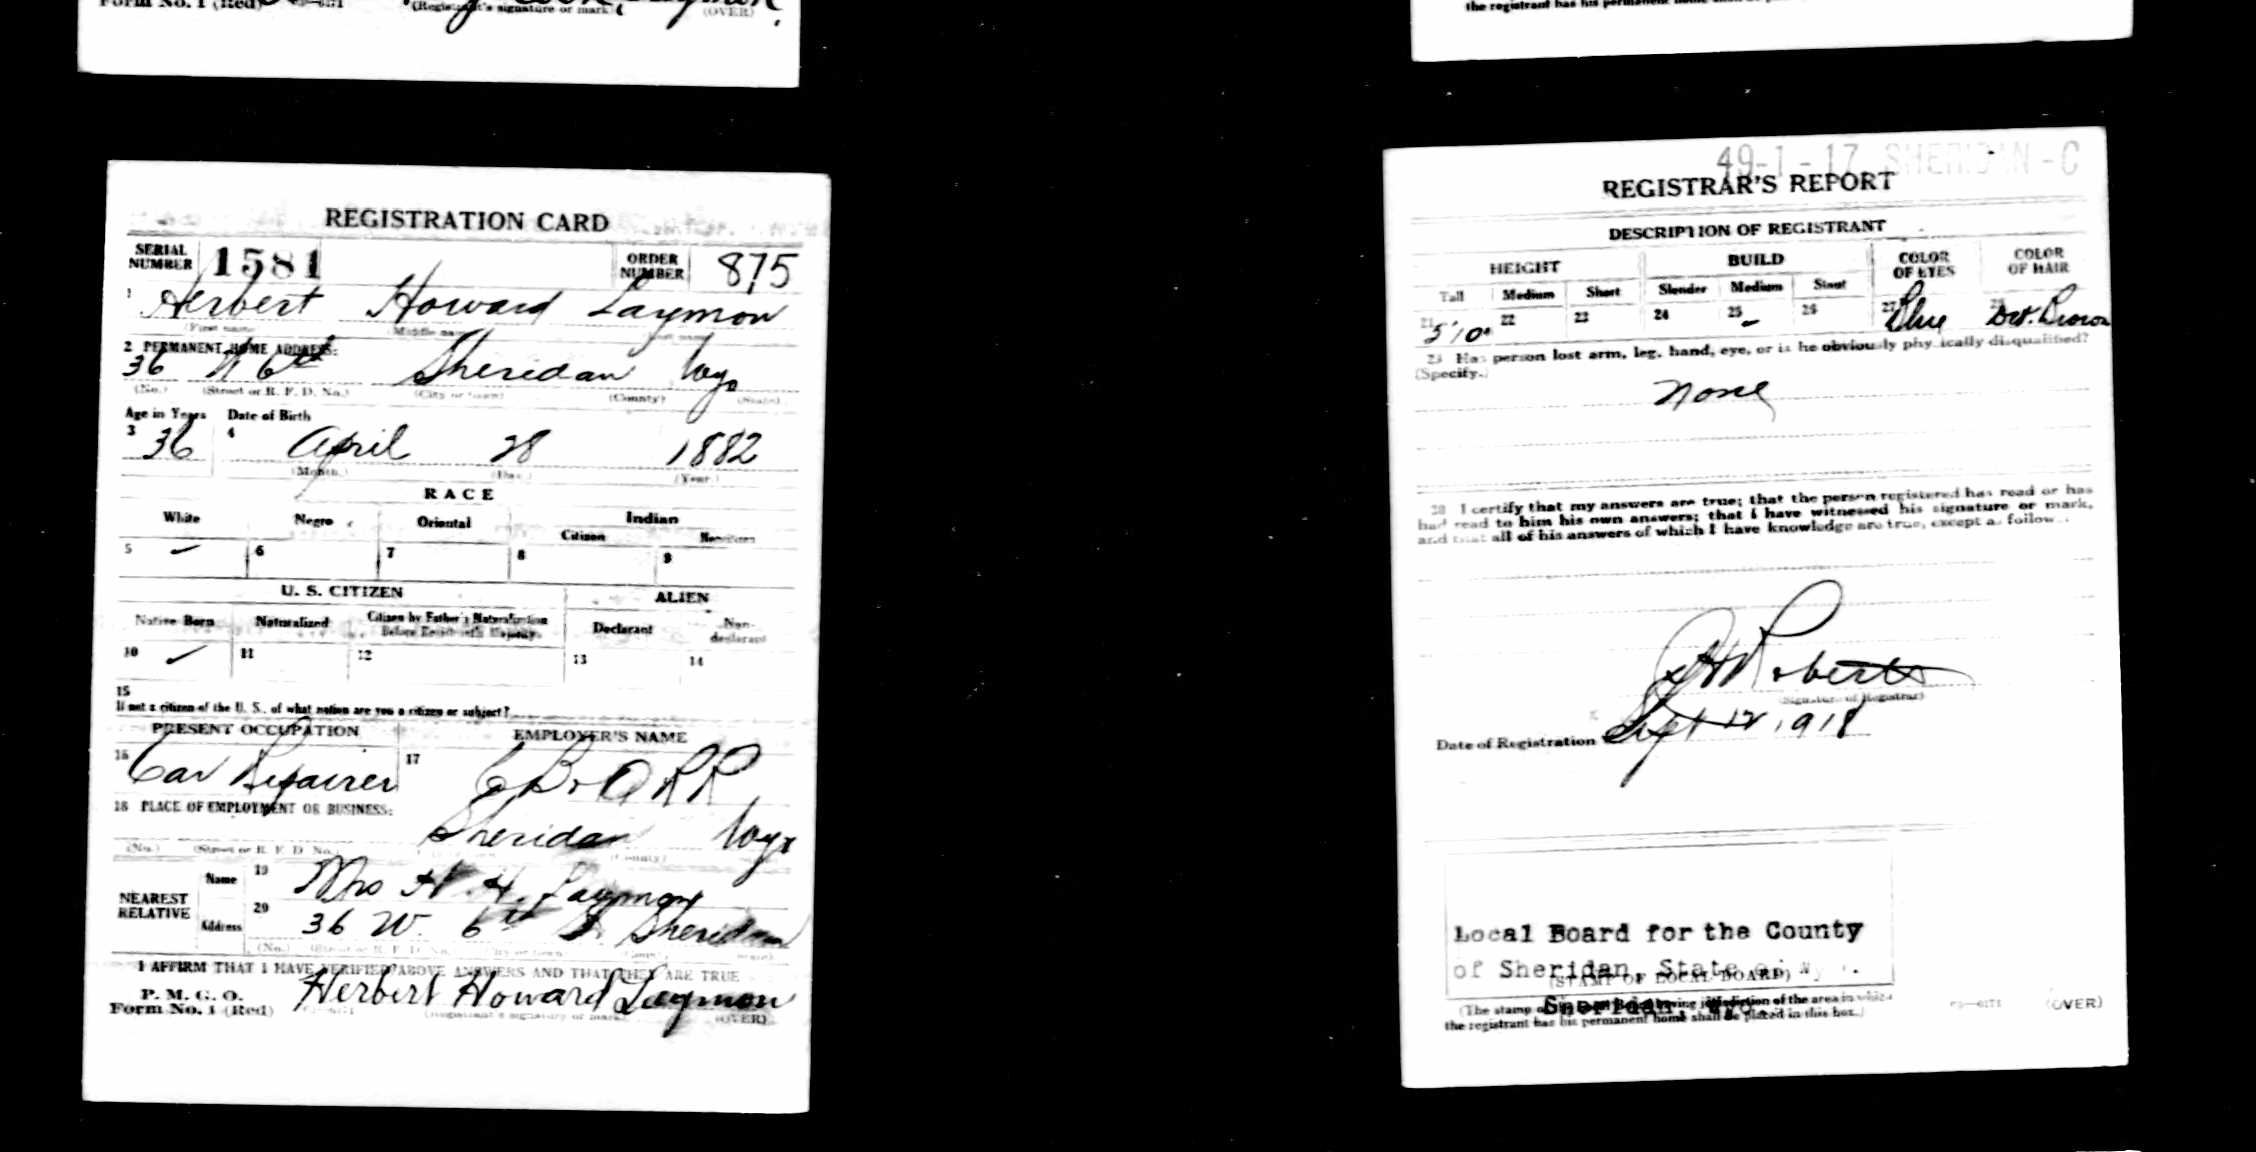 Form No. 1 (Red)
(Registrant's signature or mark)
(OVER)
the registrant has his permanent home
REGISTRATION CARD
SERIAL NUMBER 1581 ORDER NUMBER 875
1 Herbert Howard Laymon
(First name) (Middle name) (Last name)
2 PERMANENT HOME ADDRESS:
36 W 6th Sheridan Wyo
(No.) (Street or R. F. D. No.) (City or town) (County) (State)
Age in Years Date of Birth
3 36 4 April 28 1882
(Month.) (Day.) (Year.)
RACE
White Negro Oriental Indian
Citizen Noncitizen
5 ✓ 6 7 8 9
U. S. CITIZEN ALIEN
Native Born Naturalized Citizen by Father's Naturalization Before Registrant's Majority Declarant Non-declarant
10 ✓ 11 12 13 14
15
If not a citizen of the U. S., of what nation are you a citizen or subject?
PRESENT OCCUPATION EMPLOYER'S NAME
16 Car Repairer 17 C B & Q RR
18 PLACE OF EMPLOYMENT OR BUSINESS:
Sheridan Wyo
(No.) (Street or R. F. D. No.) (County)
NEAREST RELATIVE
Name 19 Mrs H. H. Laymon
Address 20 36 W. 6th St Sheridan
I AFFIRM THAT I HAVE VERIFIED ABOVE ANSWERS AND THAT THEY ARE TRUE
P. M. G. O.
Form No. 1 (Red) Herbert Howard Laymon
(Registrant's signature or mark) (OVER)
49-1-17 SHERIDAN-C
REGISTRAR'S REPORT
DESCRIPTION OF REGISTRANT
HEIGHT BUILD COLOR OF EYES COLOR OF HAIR
Tall Medium Short Slender Medium Stout
21 5'10" 22 23 24 25 ✓ 26 27 Blue 28 Dk. Brown
29 Has person lost arm, leg, hand, eye, or is he obviously physically disqualified?
(Specify.)
None
30 I certify that my answers are true; that the person registered has read or has
had read to him his own answers; that I have witnessed his signature or mark,
and that all of his answers of which I have knowledge are true, except as follows:
Roberts
(Signature of Registrar)
Date of Registration Sept 12 1918
Local Board for the County
of Sheridan, State of Wyo.
(STAMP OF LOCAL BOARD)
Sheridan, Wyo.
(The stamp of the Local Board having jurisdiction of the area in which
the registrant has his permanent home shall be placed in this box.)
03—6171 (OVER)